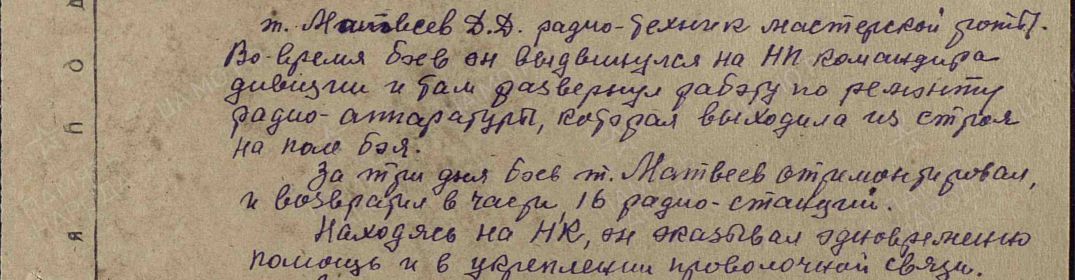 т. Матвеев Д.Д. радио-техник мастерской роты.
Во-время боев он выдвинулся на НП командира
дивизии и там развернул работу по ремонту
радио-аппаратуры, которая выходила из строя
на поле боя.
За три дня боев т. Матвеев отремонтировал,
и возвратил в части, 16 радио-станций.
Находясь на НК, он оказывал одновременно
помощь и в укреплении проволочной связи.